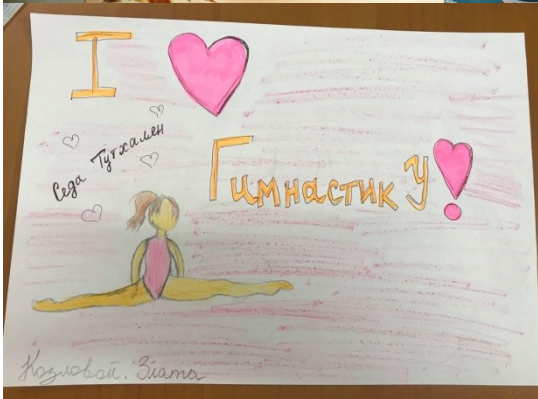 I
Седа Тутхамен
ГимнастикУ!
Козловой. Злата